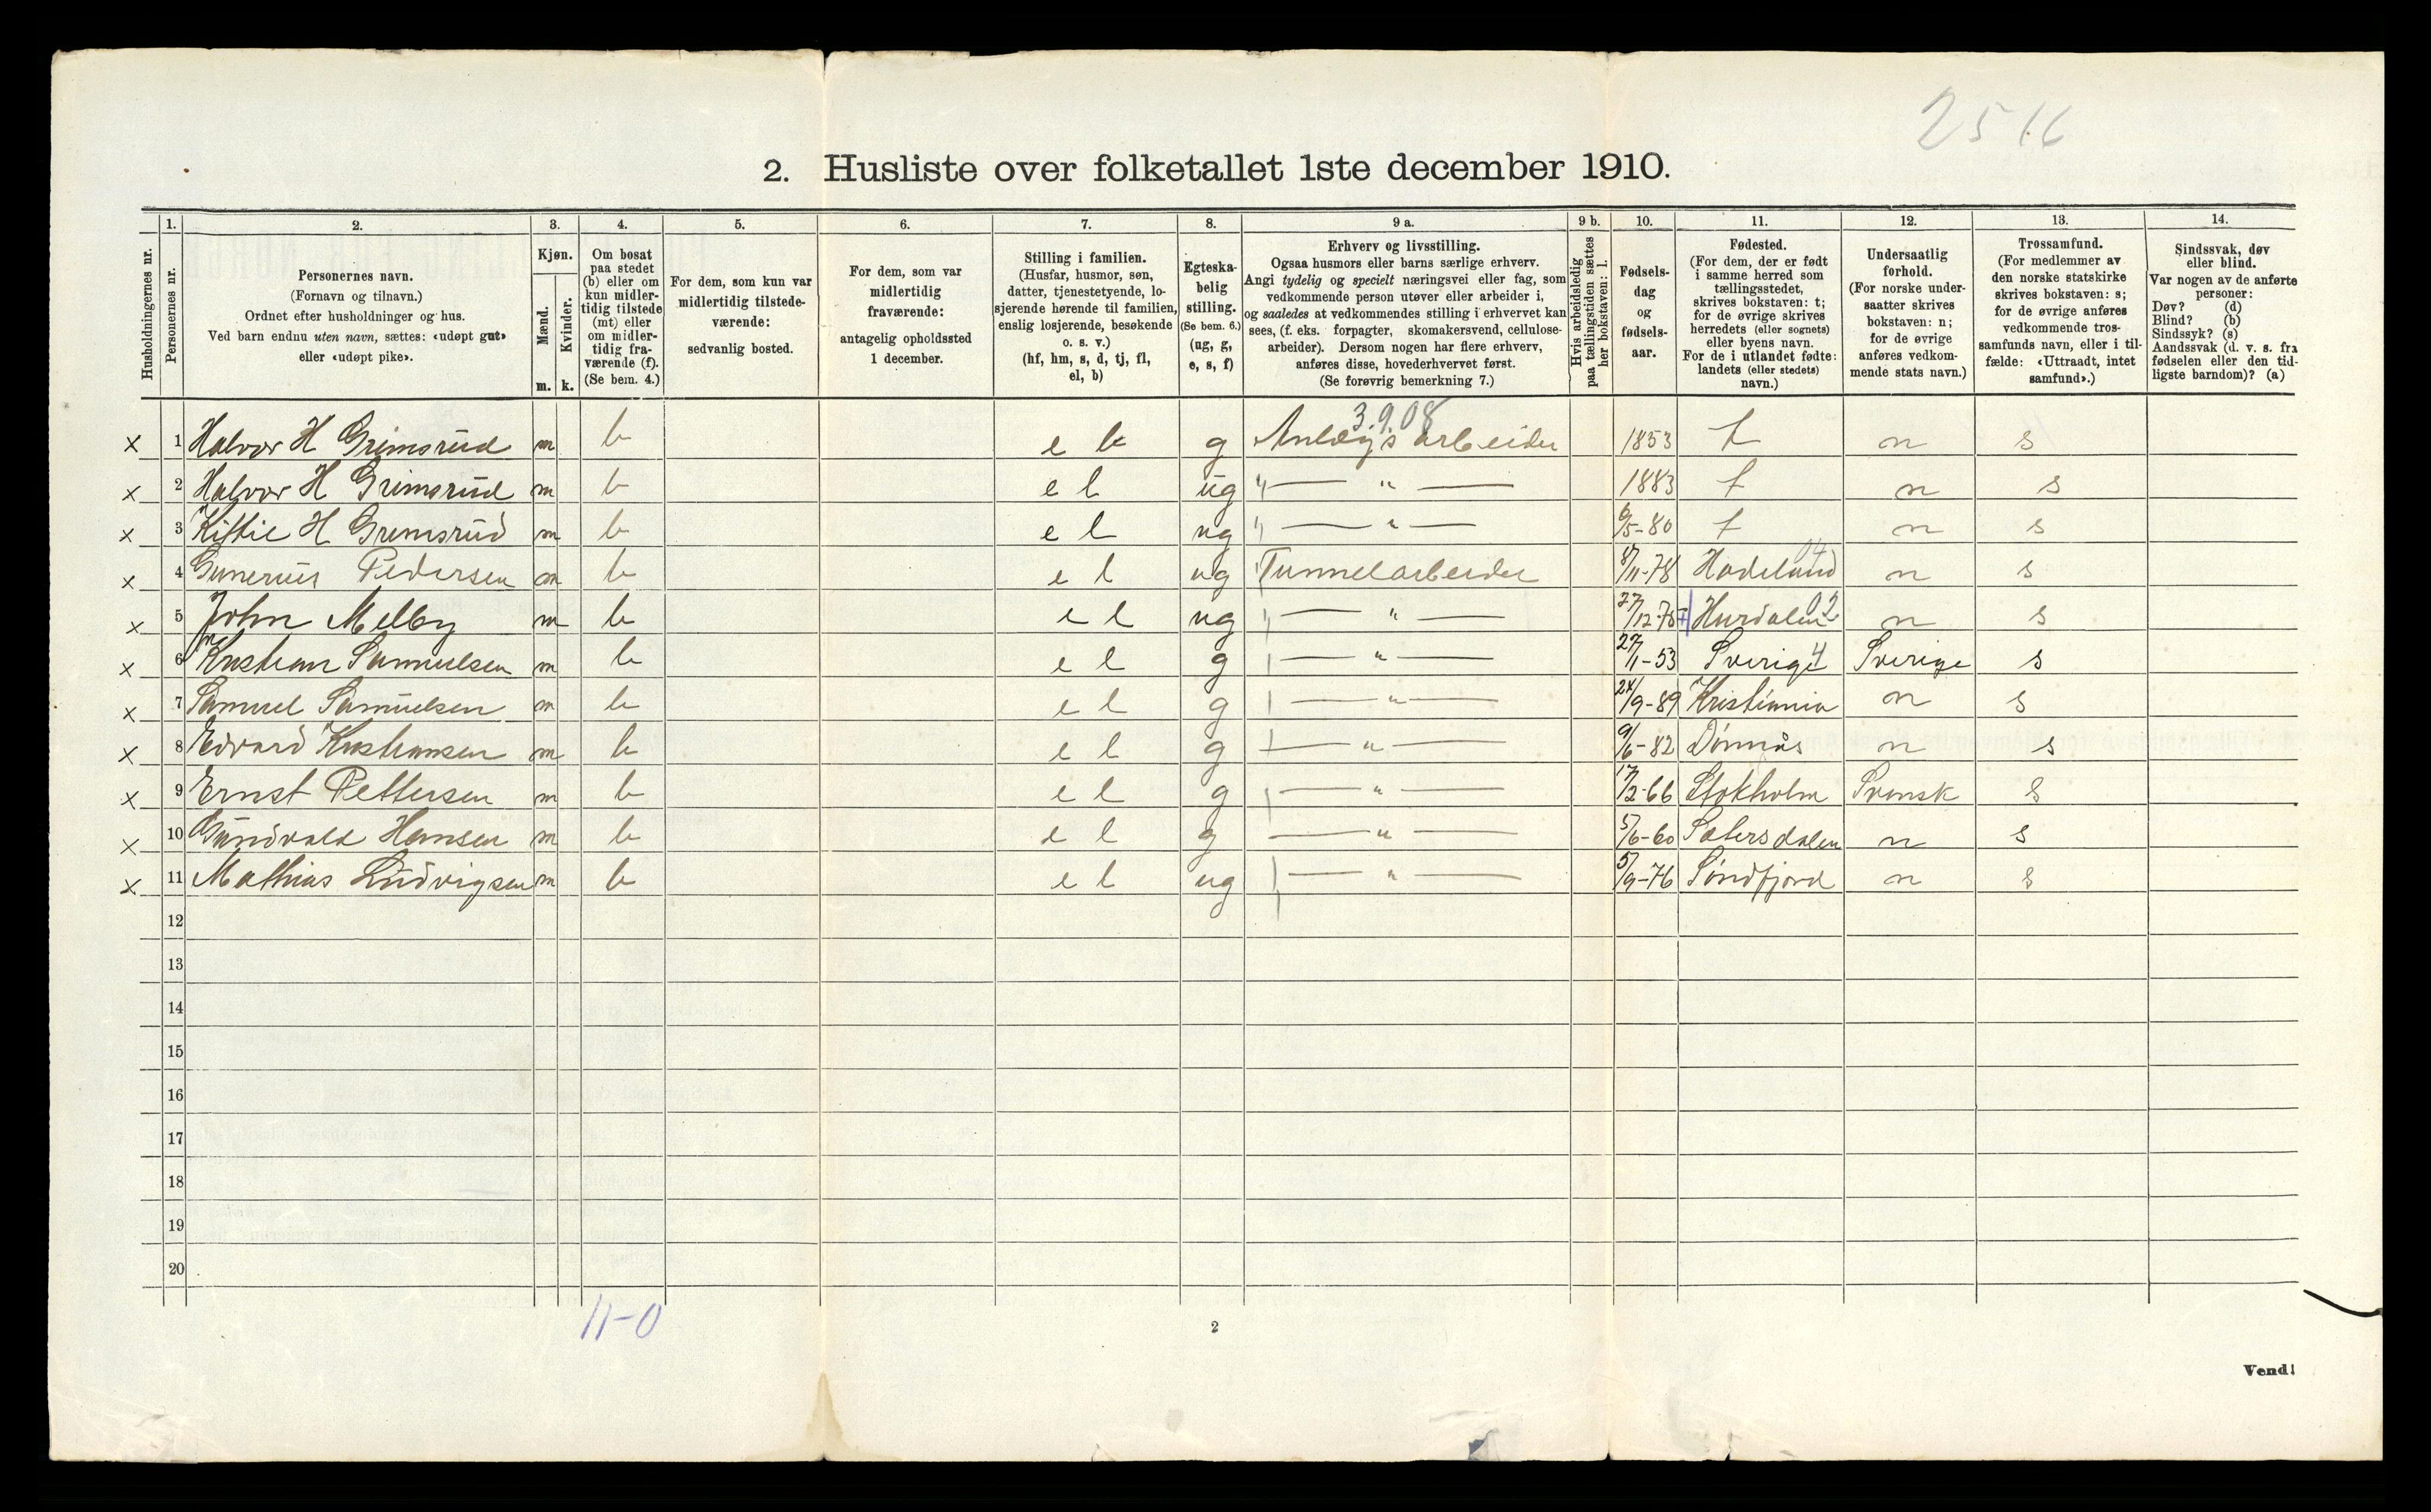 25 16
2. Husliste over folketallet 1ste december 1910.
Husholdningernes nr.
1.
Personernes nr.
2.
Personernes navn.
(Fornavn og tilnavn.)
Ordnet efter husholdninger og hus.
Ved barn endnu uten navn, sættes: «udøpt gut»
eller «udøpt pike».
3.
Kjøn.
Mænd.
Kvinder.
m. k.
4.
Om bosat
paa stedet
(b) eller om
kun midler-
tidig tilstede
(mt) eller
om midler-
tidig fra-
værende (f).
(Se bem. 4.)
5.
For dem, som kun var
midlertidig tilstede-
værende:
sedvanlig bosted.
6.
For dem, som var
midlertidig
fraværende:
antagelig opholdssted
1 december.
7.
Stilling i familien.
(Husfar, husmor, søn,
datter, tjenestetyende, lo-
sjerende hørende til familien,
enslig losjerende, besøkende
o. s. v.)
(hf, hm, s, d, tj, fl,
el, b)
8.
Egteska-
belig
stilling.
(Se bem. 6.)
(ug, g,
e, s, f)
9 a.
Erhverv og livsstilling.
Ogsaa husmors eller barns særlige erhverv.
Angi tydelig og specielt næringsvei eller fag, som
vedkommende person utøver eller arbeider i,
og saaledes at vedkommendes stilling i erhvervet kan
sees, (f. eks. forpagter, skomakersvend, cellulose-
arbeider). Dersom nogen har flere erhverv,
anføres disse, hovederhvervet først.
(Se forøvrig bemerkning 7.)
9 b.
Hvis arbeidsledig
paa tællingstiden sættes
her bokstaven: l.
10.
Fødsels-
dag
og
fødsels-
aar.
11.
Fødested.
(For dem, der er født
i samme herred som
tællingsstedet,
skrives bokstaven: t;
for de øvrige skrives
herredets (eller sognets)
eller byens navn.
For de i utlandet fødte:
landets (eller stedets)
navn.)
12.
Undersaatlig
forhold.
(For norske under-
saatter skrives
bokstaven: n;
for de øvrige
anføres vedkom-
mende stats navn.)
13.
Trossamfund.
(For medlemmer av
den norske statskirke
skrives bokstaven: s;
for de øvrige anføres
vedkommende tros-
samfunds navn, eller i til-
fælde: «Uttraadt, intet
samfund».)
14.
Sindssvak, døv
eller blind.
Var nogen av de anførte
personer:
Døv? (d)
Blind? (b)
Sindssyk? (s)
Aandssvak (d. v. s. fra
fødselen eller den tid-
ligste barndom)? (a)
3.9.08
x 1 Halvor H Grimsrud m b e l g Anlægsarbeider 1853 t n s
x 2 Halvor H Grimsrud m b e l ug " — " — 1883 t n s
x 3 Kittil H Grimsrud m b e l ug " — " — 6/5-80 t n s
x 4 Gunerius Pedersen m b e l ug Tunnelarbeider 8/11-78 Hadeland 04 n s
x 5 John Melby m b e l ug " — " — 27/12-75 Hurdalen 02 n s
x 6 Kristian Samuelsen m b e l g " — " — 27/1-53 Sverige 4 Sverige s
x 7 Samuel Samuelsen m b e l g " — " — 24/9-89 Kristiania n s
x 8 Edvard Kristiansen m b e l g " — " — 9/6-82 Dönnäs n s
x 9 Ernst Pettersen m b e l g " — " — 17/2-66 Stokholm Svensk s
x 10 Gundvald Hansen m b e l g — " — 5/6-60 Sætersdalen n s
x 11 Mathias Ludvigsen m b e l ug " — " — 5/9-76 Söndfjord n s
12
13
14
15
16
17
18
19
20
11-0
2
Vend!